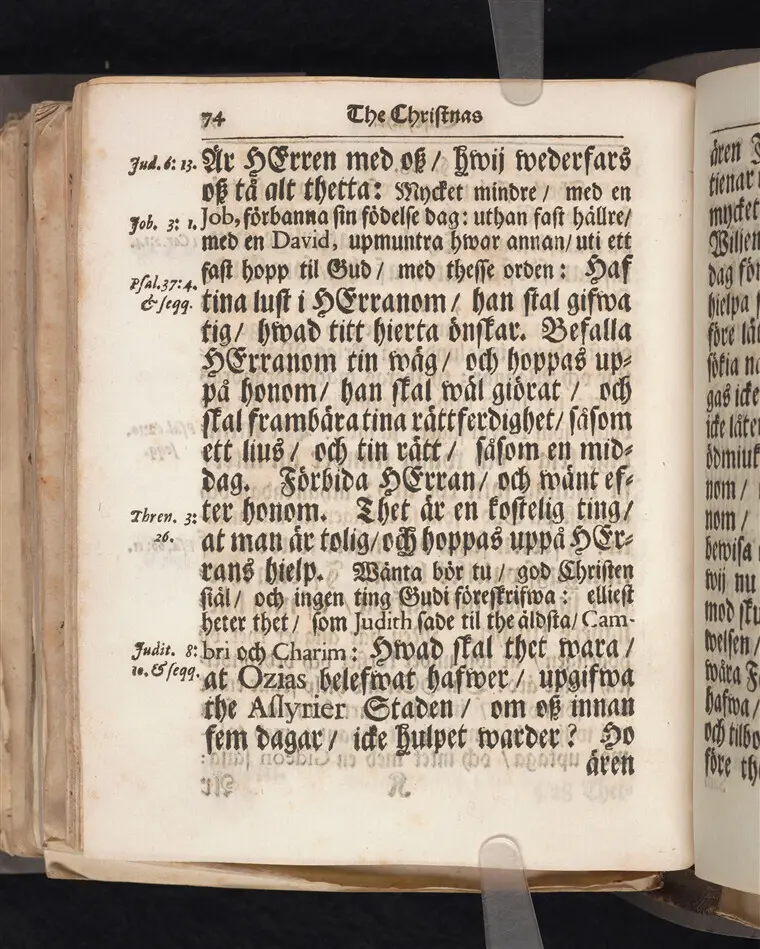 74 The Christnas
Jud. 6: 13. Är HErren med oß / hwij wederfars
oß tå alt thetta: Mycket mindre / med en
Job. 3: 1. Job, förbanna sin födelse dag: uthan fast hällre/
med en David, upmuntra hwar annan/ uti ett
fast hopp til Gud / med thesse orden: Haf
Psal. 37: 4. & seqq. tina lust i HErranom / han skal gifwa
tig / hwad titt hierta önskar. Befalla
HErranom tin wäg / och hoppas up-
på honom / han skal wäl giörat / och
skal frambära tina rättferdighet / såsom
ett lius / och tin rätt / såsom en mid-
dag. Förbida HErran / och wänt ef-
Thren. 3: 26. ter honom. Thet är en kostelig ting /
at man är tolig / och hoppas uppå HEr-
rans hielp. Wänta bör tu / god Christen
siäl / och ingen ting Gudi föreskrifwa: elliest
heter thet / som Judith sade til the äldsta / Cam-
Judit. 8: 10. & seqq. bri och Charim: Hwad skal thet wara /
at Ozias belefwat hafwer / upgifwa
the Assyrier Staden / om oß innan
fem dagar / icke hulpet warder? Ho
ären
ären
tienar
mycket
Wiljen
dag för
hielpa
före lät
sökia
gas icke
icke låte
ödmiuk
nom /
nom /
bewisa
wij nu
mod sku
welsen /
wåra F
hafwa /
och tilbo
före th